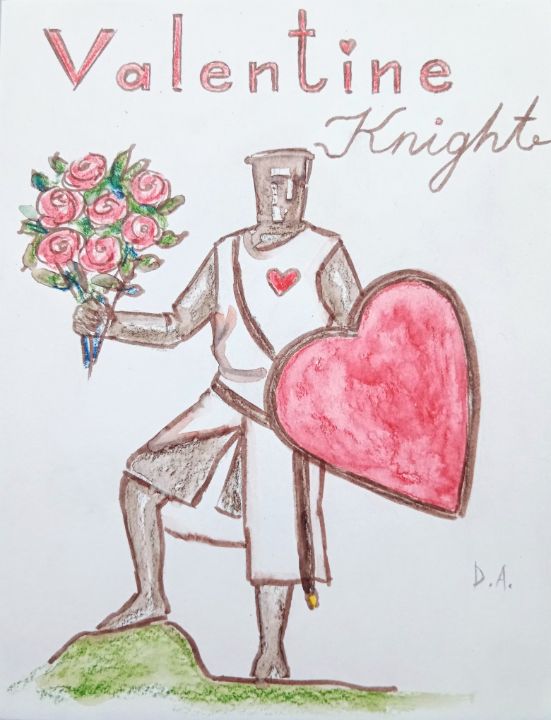 Valentine
Knight
D.A.